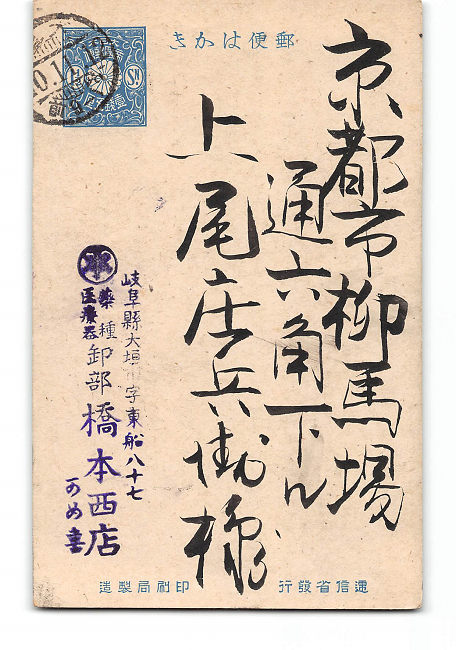 郵便はがき
京都市柳馬場
通六角下ル
上尾庄兵衛様
岐阜縣大垣市字東船八十七
薬種
医療器
卸部
橋本西店
かめ喜
逓信省發行
印刷局製造